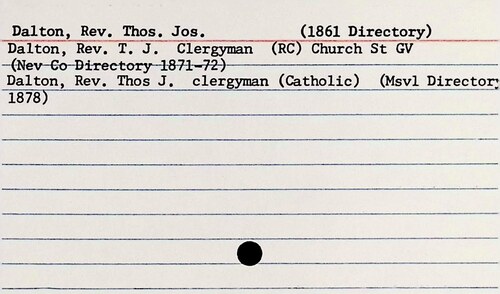 Dalton, Rev. Thos. Jos. (1861 Directory)
Dalton, Rev. T. J. Clergyman (RC) Church St GV
(Nev Co Directory 1871-72)
Dalton, Rev. Thos J. clergyman (Catholic) (Msvl Directory
1878)